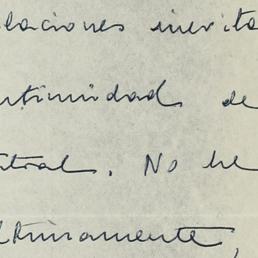 laciones inevita
ntimidad de
tral. No he
ltimamente,